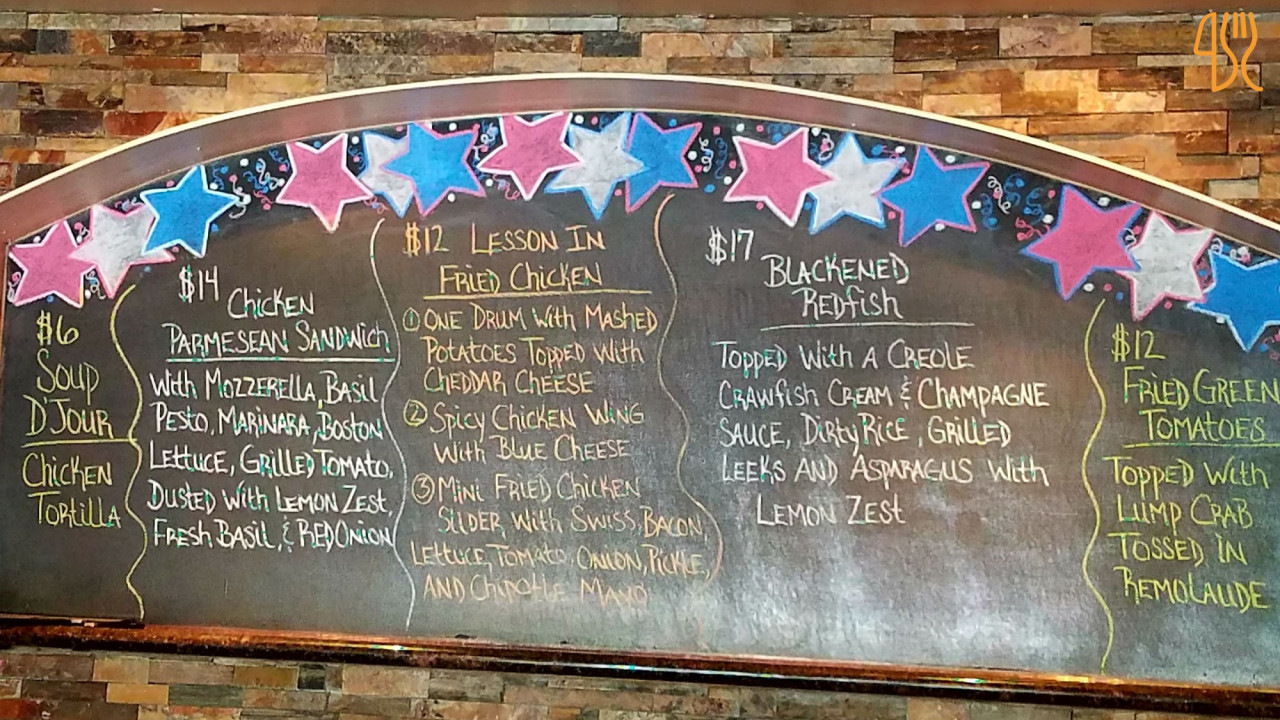 $6
Soup
D'Jour
Chicken
Tortilla
$14
Chicken
Parmesean Sandwich
With Mozzerella, Basil
Pesto, Marinara, Boston
Lettuce, Grilled Tomato,
Dusted With Lemon Zest,
Fresh Basil, & Red Onion
$12 Lesson In
Fried Chicken
① One Drum With Mashed
Potatoes Topped With
Cheddar Cheese
② Spicy Chicken Wing
With Blue Cheese
③ Mini Fried Chicken
Silder With Swiss, Bacon,
Lettuce, Tomato, Onion, Pickle,
And Chipotle Mayo
$17
Blackened
Redfish
Topped With A Creole
Crawfish Cream & Champagne
Sauce, Dirty Rice, Grilled
Leeks And Asparagus With
Lemon Zest
$12
Fried Green
Tomatoes
Topped With
Lump Crab
Tossed In
Remolaude